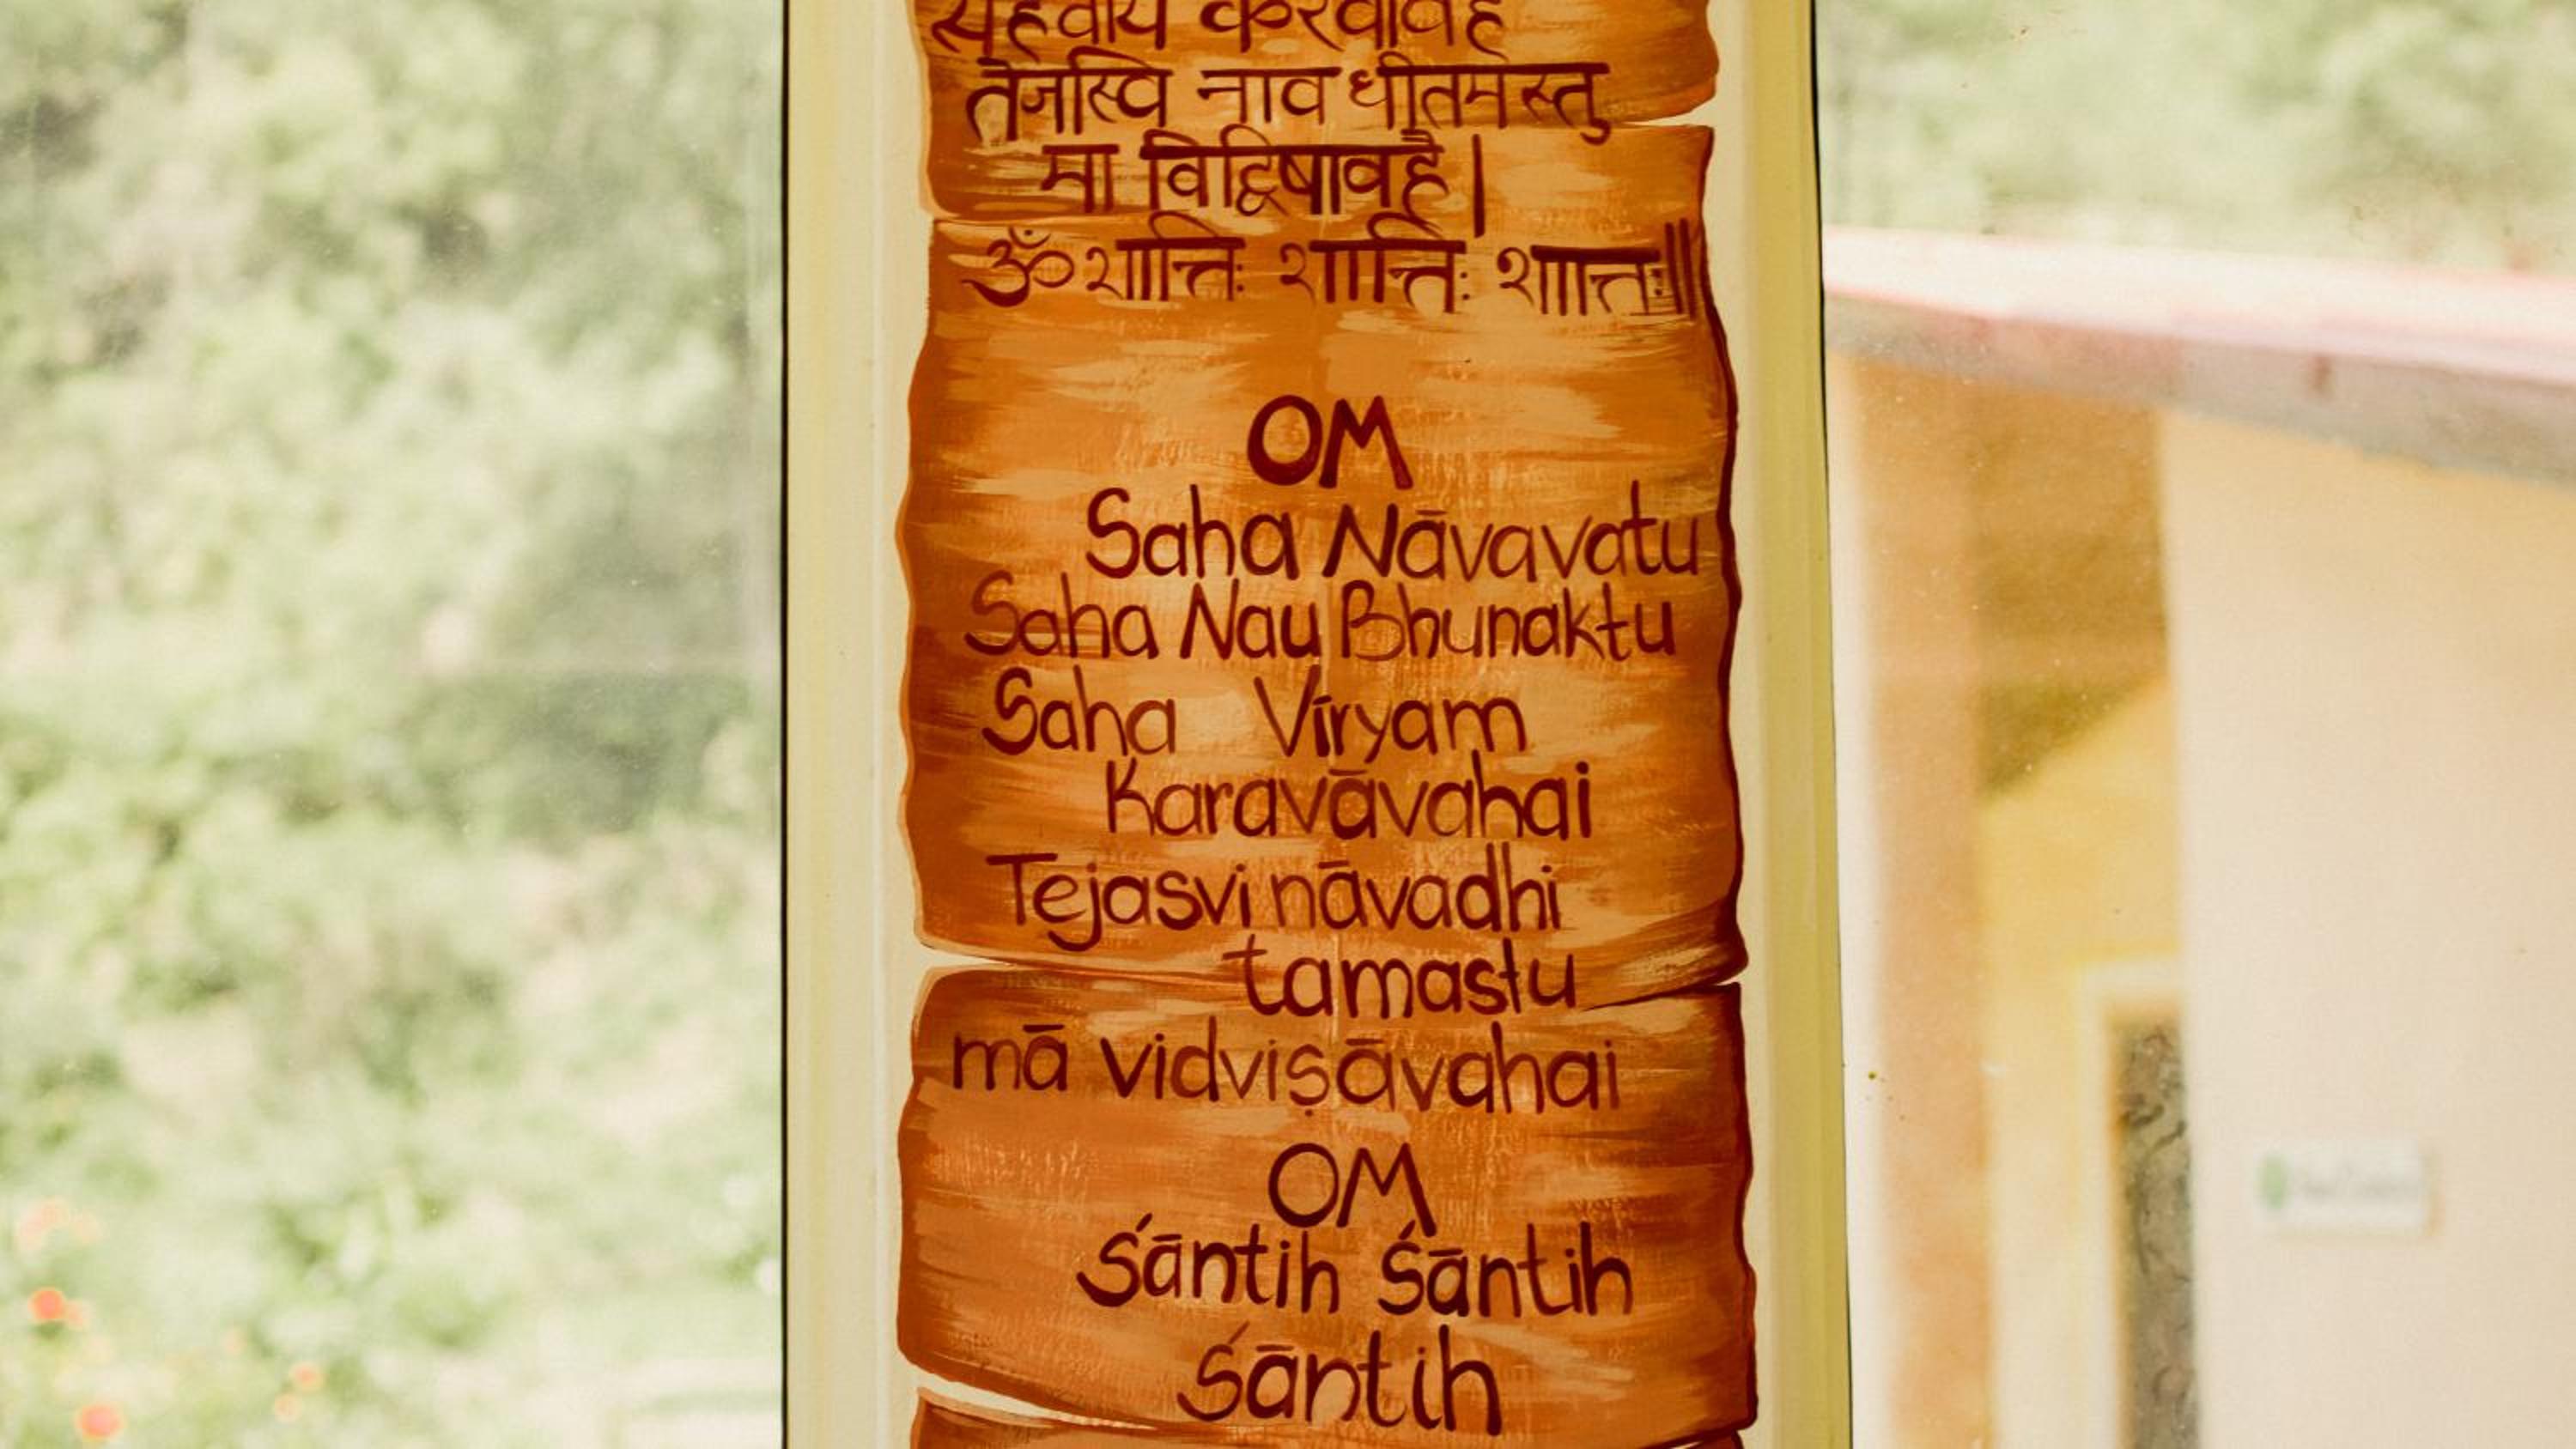 सहवीर्यं करवावहै
तेजस्वि नाव धीतमस्तु
मा विद्विषावहै।
ॐ शान्तिः शान्तिः शान्तिः॥
OM
Saha Nāvavatu
Saha Nau Bhunaktu
Saha Víryam
Karavāvahai
Tejasvi nāvadhi
tamastu
mā vidviṣāvahai
OM
Śāntih Śāntih
Śāntih